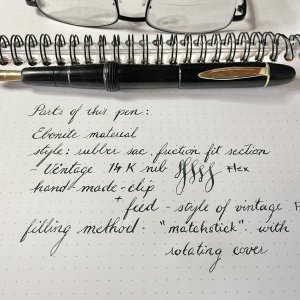 Parts of this pen:
Ebonite material
style: rubber sac, fruction fit section
- Vintage 14K nib Flex
hand-made-clip
+ feed - style of vintage F
filling method: "matchstick" with
rotating cover